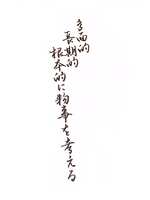 多面的
長期的
根本的に物事を考える